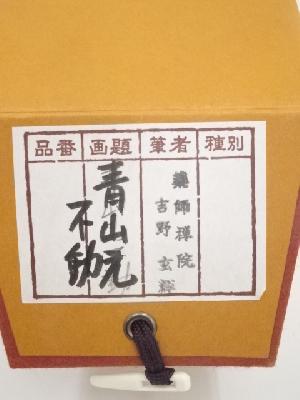 品番 画題 筆者 種別
青山元
不動
藥師禅院
吉野 玄輝